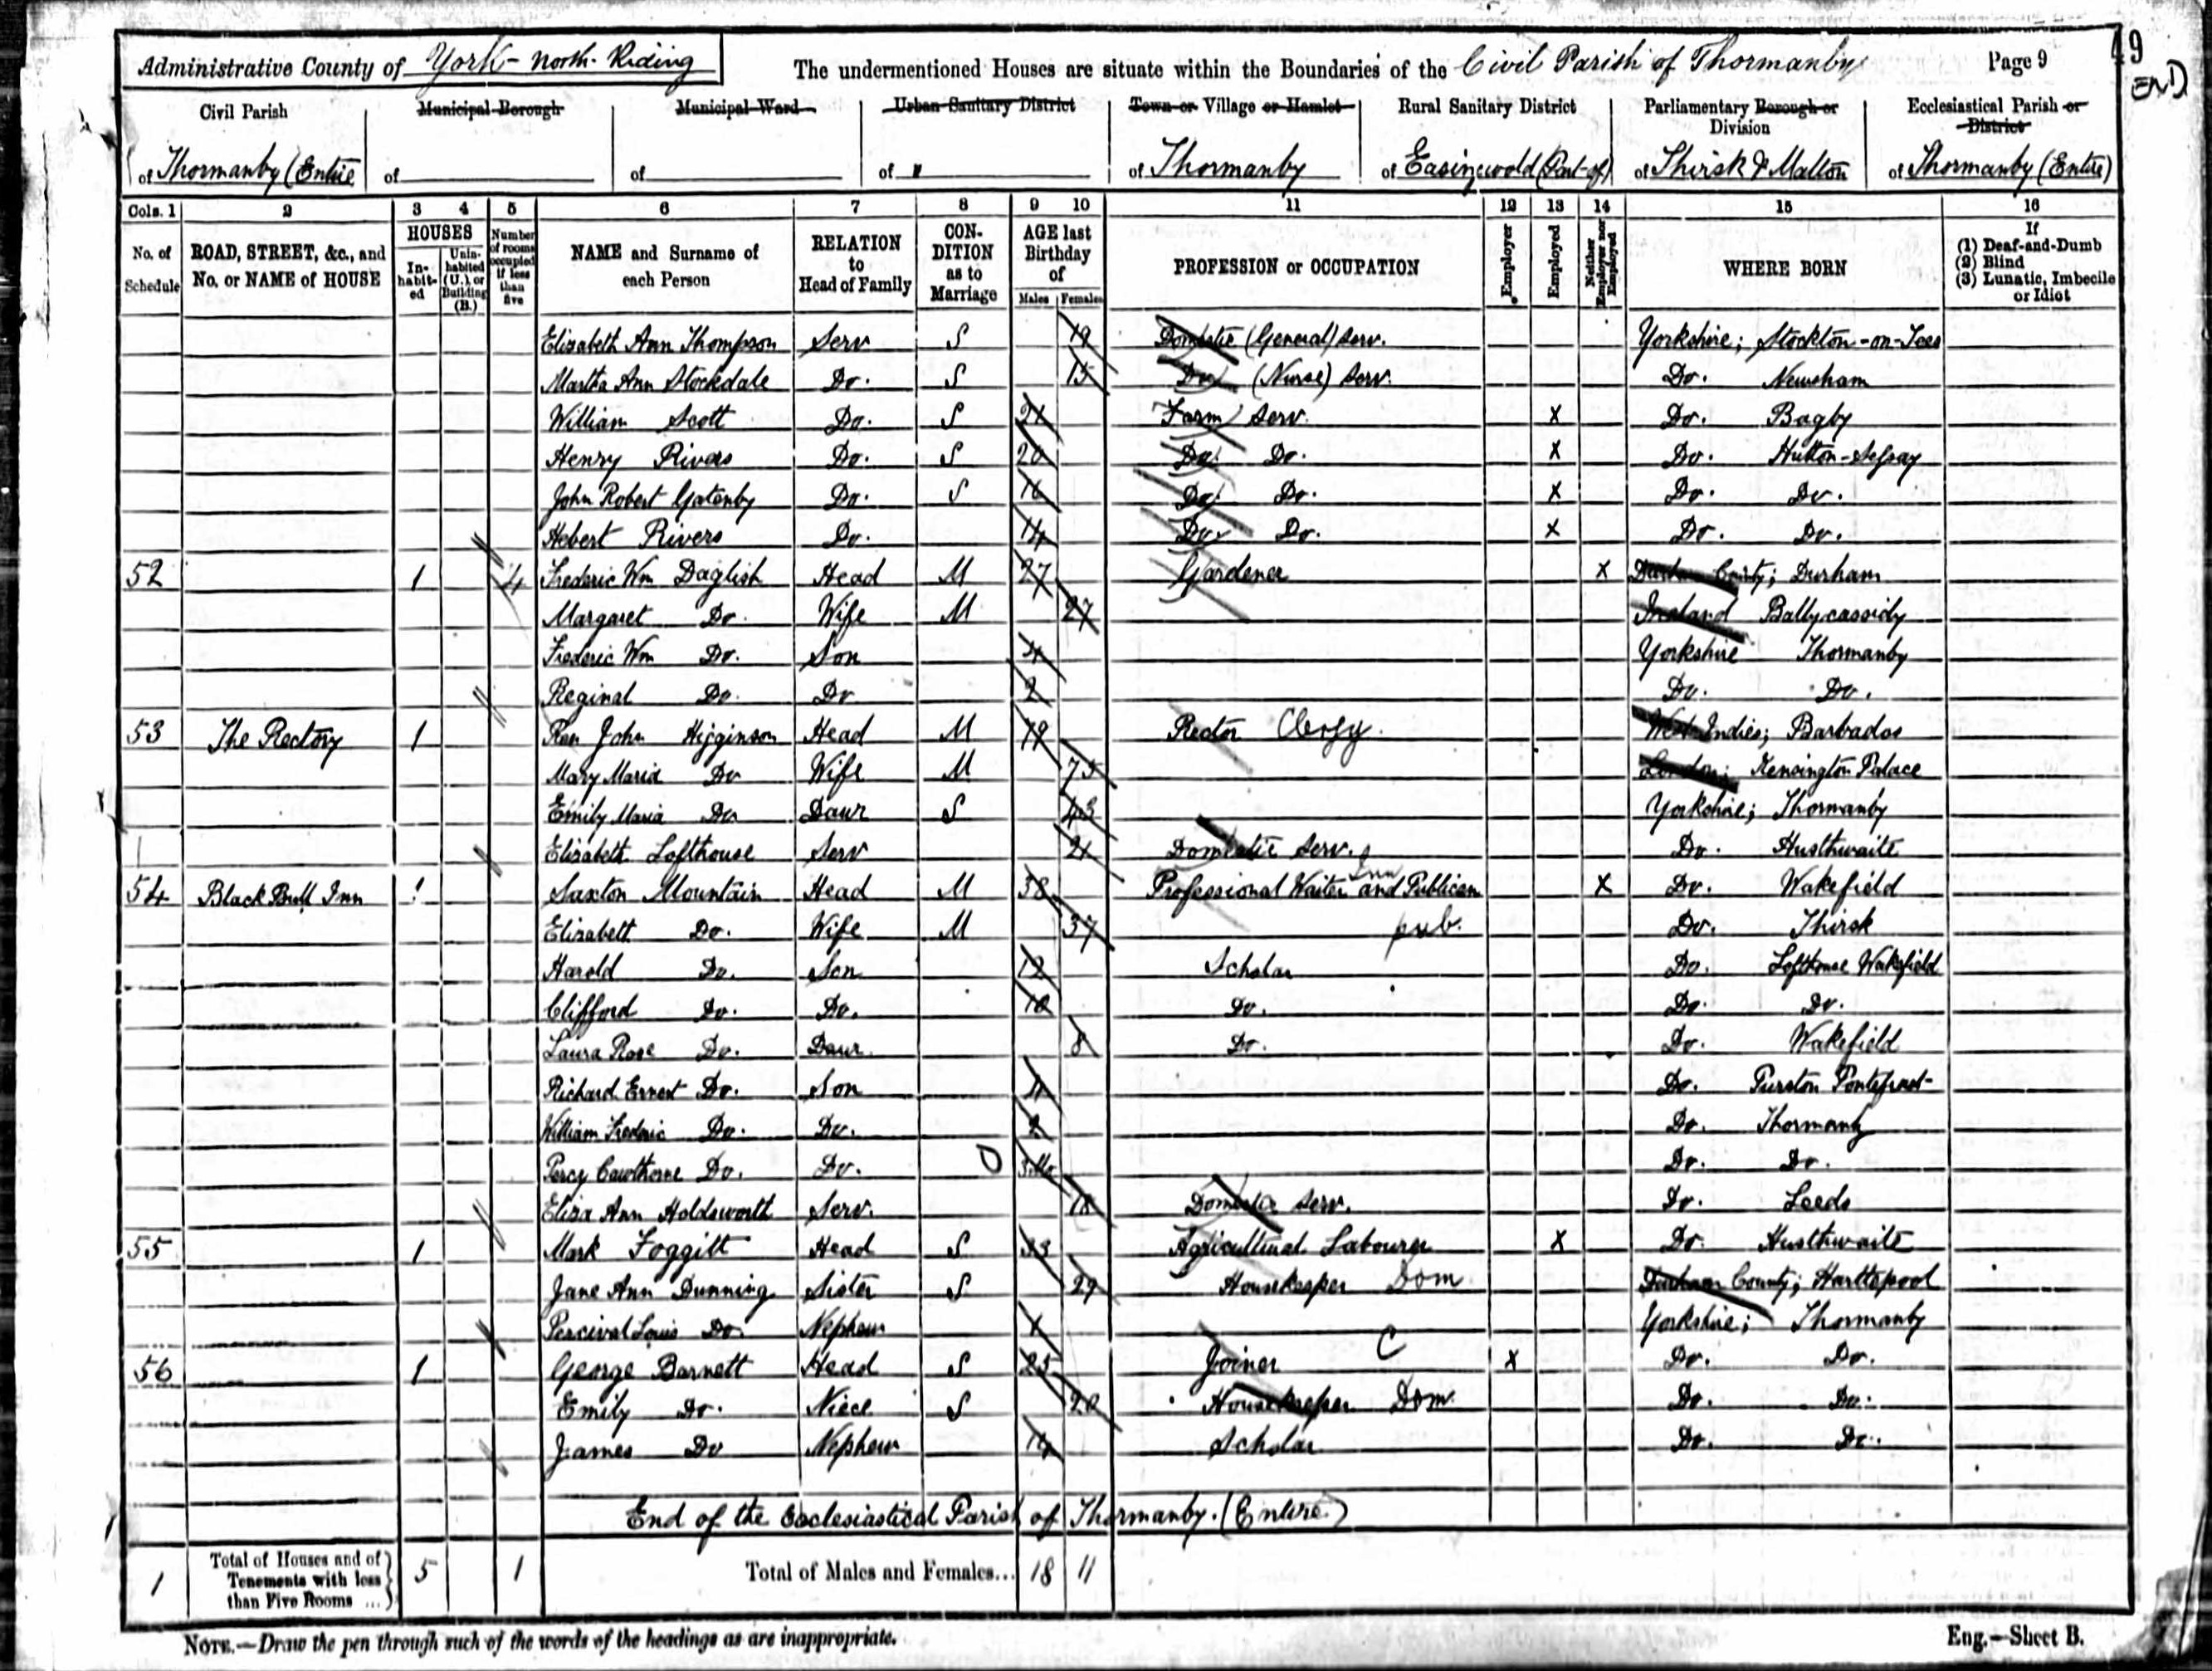 Administrative County of York - North Riding
The undermentioned Houses are situate within the Boundaries of the Civil Parish of Thormanby
Page 9
49
END
Civil Parish of Thormanby (Entire
Municipal Borough of
Municipal Ward of
Urban Sanitary District of
Town or Village or Hamlet of Thormanby
Rural Sanitary District of Easingwold (Part of)
Parliamentary Borough or Division of Thirsk & Malton
Ecclesiastical Parish or District of Thormanby (Entire)
Cols. 1 2 3 4 5 6 7 8 9 10 11 12 13 14 15 16
No. of Schedule
ROAD, STREET, &c., and No. or NAME of HOUSE
HOUSES
In-habit-ed
Unin-habited (U.), or Building (B.)
Number of rooms occupied if less than five
NAME and Surname of each Person
RELATION to Head of Family
CON-DITION as to Marriage
AGE last Birthday of
Males Females
PROFESSION or OCCUPATION
Employer
Employed
Neither Employer nor Employed
WHERE BORN
If
(1) Deaf-and-Dumb
(2) Blind
(3) Lunatic, Imbecile or Idiot
Elizabeth Ann Thompson Serv S 19 Domestic (General) Serv. Yorkshire; Stockton-on-Tees
Martha Ann Stockdale Do. S 15 Do (Nurse) Serv. Do. Newsham
William Scott Do. S 21 Farm Serv. X Do. Bagby
Henry Rivers Do. S 20 Do. Do. X Do. Hutton-Sessay
John Robert Gatenby Do. S 16 Do. Do. X Do. Do.
Hebert Rivers Do. 14 Do. Do. X Do. Do.
52 1 4 Frederic Wm Daglish Head M 27 Gardener X Durham County; Durham
Margaret Do. Wife M 27 Ireland Ballycassidy
Frederic Wm Do. Son 4 Yorkshire Thormanby
Reginal Do. Do 2 Do. Do.
53 The Rectory 1 Rev John Higginson Head M 79 Rector Clergy West Indies; Barbados
Mary Maria Do Wife M 75 London; Kensington Palace
Emily Maria Do Daur S 43 Yorkshire; Thormanby
Elizabeth Lofthouse Serv 21 Domestic Serv. Do. Husthwaite
54 Black Bull Inn 1 Saxton Mountain Head M 38 Professional Waiter and Publican X Do. Wakefield
Inn
Elizabeth Do. Wife M 37 pub. Do. Thirsk
Harold Do. Son 12 Scholar Do. Lofthouse Wakefield
Clifford Do. Do. 10 Do. Do. Do.
Laura Rose Do. Daur 8 Do. Do. Wakefield
Richard Ernest Do. Son 4 Do. Purston Pontefract
William Frederic Do. Do. 2 Do. Thormanby
Percy Cawthorne Do. Do. 3 Mo Do. Do.
Eliza Ann Holdsworth Serv. 18 Domestic Serv. Do. Leeds
55 1 Mark Foggitt Head S 33 Agricultural Labourer X Do. Husthwaite
Jane Ann Dunning Sister S 29 Housekeeper Dom Durham County; Hartlepool
Percival Louis Do. Nephew Yorkshire; Thormanby
56 1 George Barnett Head S 25 Joiner C X Do. Do.
Emily Do. Niece S 20 Housekeeper Dom Do. Do.
James Do Nephew 14 Scholar Do. Do.
End of the Ecclesiastical Parish of Thormanby. (Entire.)
1 Total of Houses and of Tenements with less than Five Rooms ... 5 1 Total of Males and Females... 18 11
NOTE.—Draw the pen through such of the words of the headings as are inappropriate.
Eng.—Sheet B.